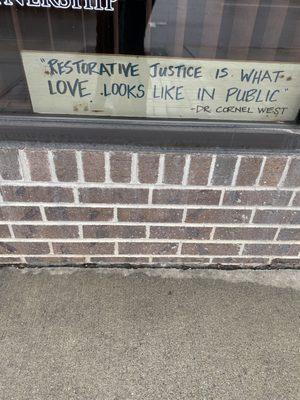 "RESTORATIVE JUSTICE IS WHAT
LOVE LOOKS LIKE IN PUBLIC"
-DR CORNEL WEST